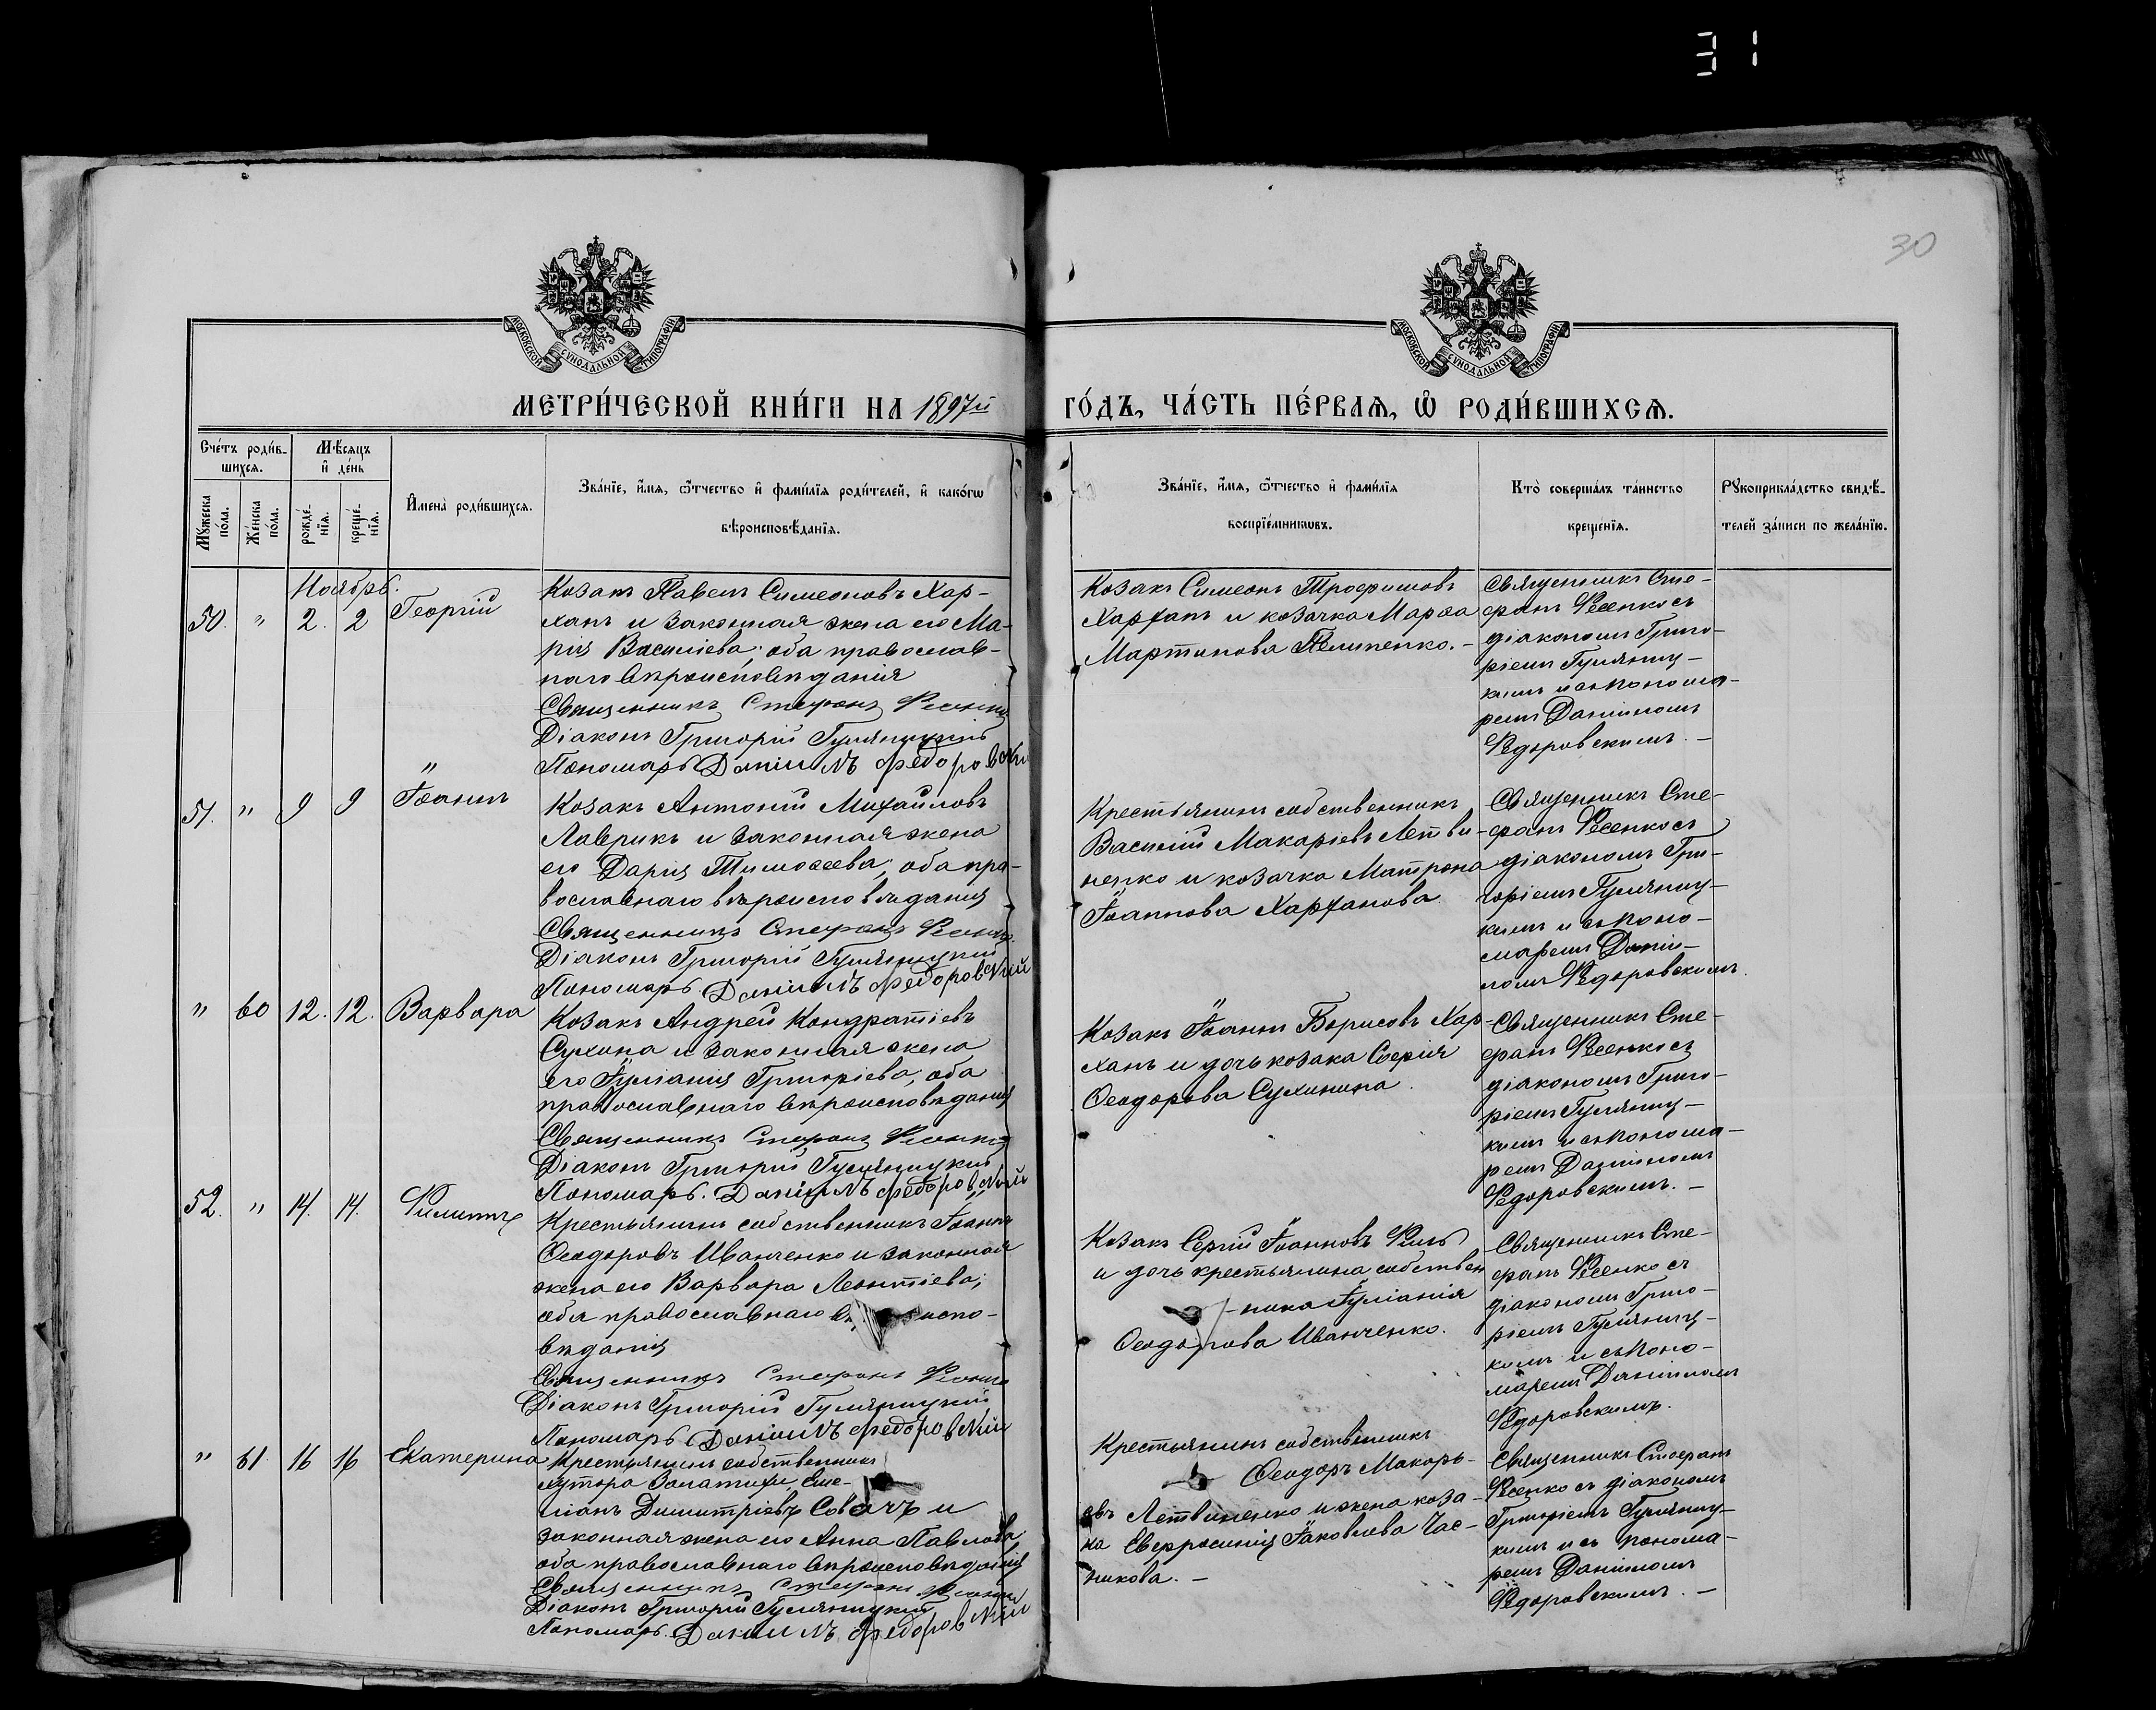 31
30
МОСКОВСКОЙ СѴНОДАЛЬНОЙ ТИПОГРАФІИ
МОСКОВСКОЙ СѴНОДАЛЬНОЙ ТИПОГРАФІИ
МЕТРИ́ЧЕСКОЙ КНИ́ГИ НА 1897й
ГО́ДЪ, ЧА́СТЬ ПЕ́РВАѦ, Ѽ РОДИ́ВШИХСѦ.
Сче́тъ роди́в-
шихсѧ.
Мꙋжеска по́ла.
Же́нска по́ла.
Мѣ́сѧцъ
и҆ де́нь
рожде́-
нїѧ.
креще́-
нїѧ.
И҆мена̀ роди́вшихсѧ.
Зва́нїе, и҆́мѧ, ѻ҆́тчество и҆ фами́лїѧ роди́телей, и҆ како́гѡ
вѣроисповѣ́данїѧ.
Зва́нїе, и҆́мѧ, ѻ҆́тчество и҆ фами́лїѧ
воспрїе́мникѡвъ.
Кто̀ соверша́лъ та́инство
креще́нїѧ.
Рꙋкоприкла́дство свидѣ́-
телей за́писи по жела́нїю.
Ноябрь.
50. " 2. 2 Георгій
Козакъ Павелъ Симеоновъ Хар-
ханъ и законная жена его Ма-
рія Василіева; оба православ-
наго вѣроисповѣданія
Священникъ Стефанъ Фесенко
Діаконъ Григорій Гуляницкій
Пономарь Даніилъ Федоровскій
Козакъ Симеонъ Трофимовъ
Харханъ и козачка Марѳа
Мартинова Пелипенко. -
Священникъ Сте-
фанъ Фесенко съ
діакономъ Григо-
ріемъ Гуляниц-
кимъ и съ понома-
ремъ Даніиломъ
Федоровскимъ. -
"
51. " 9 9 Іоаннъ
Козакъ Антоній Михайловъ
Лаврикъ и законная жена
его Дарія Тимоѳеева; оба пра-
вославнаго вѣроисповѣданія
Священникъ Стефанъ Фесенко
Діаконъ Григорій Гуляницкій
Пономарь. Даніилъ Федоровскій
Крестьянинъ собственникъ
Василій Макаріевъ Летви-
ненко и козачка Матрона
Іоаннова Харханова.
Священникъ Сте-
фанъ Фесенко съ
діакономъ Гри-
горіемъ Гуляниц-
кимъ и съ поно-
маремъ Даніи-
ломъ Федоровскимъ.
" 60 12. 12. Варвара
Козакъ Андрей Кондратіевъ
Сухина и законная жена
его Іуліанія Григоріева; оба
православнаго вѣроисповѣданія
Священникъ Стефанъ Фесенко
Діаконъ Григорій Гуляницкій
Пономарь. Даніилъ Федоровскій
Козакъ Іоаннъ Борисовъ Хар-
ханъ и дочь козака Софія
Ѳеодорова Сухинина.
Священникъ Сте-
фанъ Фесенко съ
діакономъ Григо-
ріемъ Гуляниц-
кимъ и съ понома-
ремъ Даніиломъ
Федоровскимъ. -
52. " 14. 14. Филиппъ
Крестьянинъ собственникъ Іоаннъ
Ѳеодоровъ Иванченко и законная
жена его Варвара Леонтіева;
оба православнаго вѣроиспо-
вѣданія
Священникъ Стефанъ Фесенко
Діаконъ Григорій Гуляницкій
Пономарь Даніилъ Федоровскій
Козакъ Сергій Іоанновъ Филь
и дочь крестьянина собствен
-ника Іуліанія
Ѳеодорова Иванченко.
Священникъ Сте-
фанъ Фесенко съ
діакономъ Григо-
ріемъ Гуляниц-
кимъ и съ поно-
маремъ Даніиломъ
Федоровскимъ.
" 61. 16 16 Екатерина
Крестьянинъ собственникъ
хутора Залатихи Еме-
ліанъ Димитріевъ Совачъ и
законная жена его Анна Павлова
оба православнаго вѣроисповѣданія
Священникъ Стефанъ Фесенко
Діаконъ Григорій Гуляницкій
Пономарь. Даніилъ Федоровскій
Крестьянинъ собственникъ
Ѳеодоръ Макарь-
евъ Летвиненко и жена коза-
ка Евфросинія Іаковлева Час-
никова. -
Священникъ Стефанъ
Фесенко съ діакономъ
Григоріемъ Гуляниц-
кимъ и съ понома-
ремъ Даніиломъ
Федоровскимъ. -